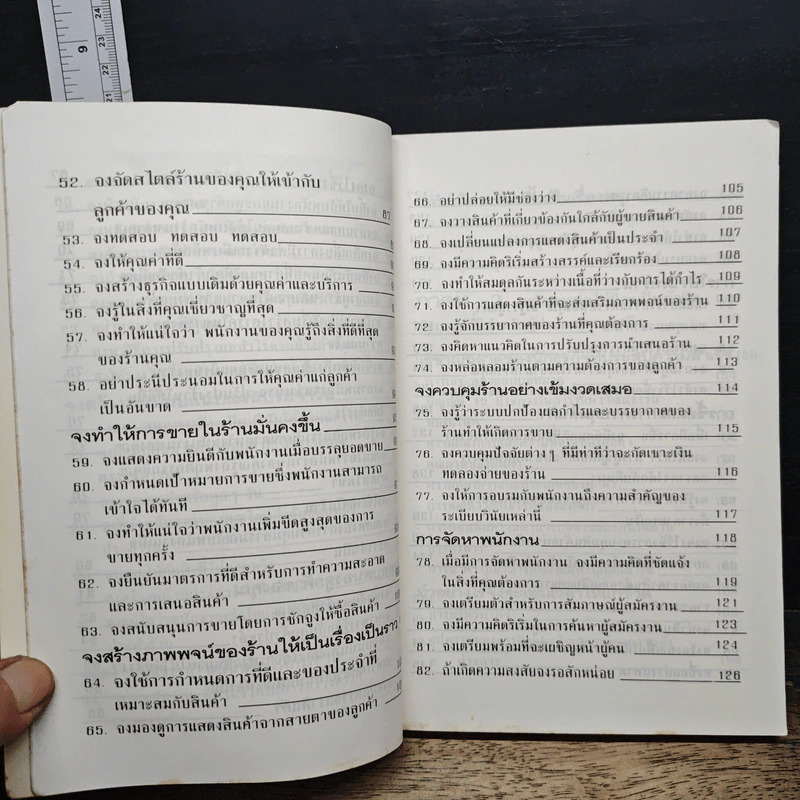 9
24
23
22
21
52. จงจัดสไตล์ร้านของคุณให้เข้ากับ
ลูกค้าของคุณ 87
53. จงทดสอบ ทดสอบ ทดสอบ
54. จงให้คุณค่าที่ดี
55. จงสร้างธุรกิจแบบเดิมด้วยคุณค่าและบริการ
56. จงรู้ในสิ่งที่คุณเชี่ยวชาญที่สุด
57. จงทำให้แน่ใจว่า พนักงานของคุณรู้ถึงสิ่งที่ดีที่สุด
ของร้านคุณ
58. อย่าประนีประนอมในการให้คุณค่าแก่ลูกค้า
เป็นอันขาด
จงทำให้การขายในร้านมั่นคงขึ้น
59. จงแสดงความยินดีกับพนักงานเมื่อบรรลุยอดขาย
60. จงกำหนดเป้าหมายการขายซึ่งพนักงานสามารถ
เข้าใจได้ทันที
61. จงทำให้แน่ใจว่าพนักงานเพิ่มขีดสูงสุดของการ
ขายทุกครั้ง
62. จงยืนยันมาตรการที่ดีสำหรับการทำความสะอาด
และการเสนอสินค้า
63. จงสนับสนุนการขายโดยการชักจูงให้ซื้อสินค้า
จงสร้างภาพพจน์ของร้านให้เป็นเรื่องเป็นราว
64. จงใช้การกำหนดการที่ดีและของประจำที่
เหมาะสมกับสินค้า
65. จงมองดูการแสดงสินค้าจากสายตาของลูกค้า
66. อย่าปล่อยให้มีช่องว่าง 105
67. จงวางสินค้าที่เกี่ยวข้องกันใกล้กับผู้ขายสินค้า 106
68. จงเปลี่ยนแปลงการแสดงสินค้าเป็นประจำ 107
69. จงมีความคิดริเริ่มสร้างสรรค์และเรียกร้อง 108
70. จงทำให้สมดุลกันระหว่างเนื้อที่ว่างกับการได้กำไร 109
71. จงใช้การแสดงสินค้าที่จะส่งเสริมภาพพจน์ของร้าน 110
72. จงรู้จักบรรยากาศของร้านที่คุณต้องการ 111
73. จงคิดหาแนวคิดในการปรับปรุงการนำเสนอร้าน 112
74. จงหล่อหลอมร้านตามความต้องการของลูกค้า 113
จงควบคุมร้านอย่างเข้มงวดเสมอ 114
75. จงรู้ว่าระบบปกป้องผลกำไรและบรรยากาศของ
ร้านทำให้เกิดการขาย 115
76. จงควบคุมปัจจัยต่างๆ ที่มีท่าทีว่าจะกัดเซาะเงิน
ทดลองจ่ายของร้าน 116
77. จงให้การอบรมกับพนักงานถึงความสำคัญของ
ระเบียบวินัยเหล่านี้ 117
การจัดหาพนักงาน 118
78. เมื่อมีการจัดหาพนักงาน จงมีความคิดที่ชัดแจ้ง
ในสิ่งที่คุณต้องการ 119
79. จงเตรียมตัวสำหรับการสัมภาษณ์ผู้สมัครงาน 121
80. จงมีความคิดริเริ่มในการค้นหาผู้สมัครงาน 123
81. จงเตรียมพร้อมที่จะเผชิญหน้าผู้คน 124
82. ถ้าเกิดความสงสัยจงรอสักหน่อย 126